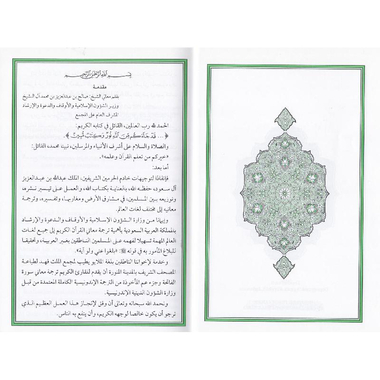 بسم الله الرحمن الرحيم
مقدمة
بقلم معالي الشيخ: صالح بن عبدالعزيز بن محمد آل الشيخ
وزير الشؤون الإسلامية والأوقاف والدعوة والإرشاد
المشرف العام على المجمع
الحمد لله رب العالمين، القائل في كتابه الكريم:
﴿... قَدْ جَاءَكُم مِّنَ اللَّهِ نُورٌ وَكِتَابٌ مُّبِينٌ﴾
والصلاة والسلام على أشرف الأنبياء والمرسلين، نبينا محمد، القائل:
«خيركم من تعلم القرآن وعلمه».
أما بعد:
فإنفاذًا لتوجيهات خادم الحرمين الشريفين، الملك عبدالله بن عبدالعزيز
آل سعود، حفظه الله، بالعناية بكتاب الله، والعمل على تيسير نشره،
وتوزيعه بين المسلمين، في مشارق الأرض ومغاربها، وتفسيره، وترجمة
معانيه إلى مختلف لغات العالم.
وإيمانًا من وزارة الشؤون الإسلامية والأوقاف والدعوة والإرشاد
بالمملكة العربية السعودية بأهمية ترجمة معاني القرآن الكريم إلى جميع لغات
العالم المهمة تسهيلًا لفهمه على المسلمين الناطقين بغير العربية، وتحقيقًا
للبلاغ المأمور به في قوله ﷺ: «بلغوا عني ولو آية».
وخدمةً لإخواننا الناطقين بلغة الملايو يطيب لمجمع الملك فهد لطباعة
المصحف الشريف بالمدينة المنورة أن يقدم للقارئ الكريم ترجمة معاني سورة
الفاتحة وجزء عم المأخوذة من الترجمة الإندونيسية الكاملة المعتمدة من قبل
وزارة الشؤون الدينية الإندونيسية.
ونحمد الله سبحانه وتعالى أن وفق لإنجاز هذا العمل العظيم الذي
نرجو أن يكون خالصًا لوجهه الكريم، وأن ينفع به الناس.